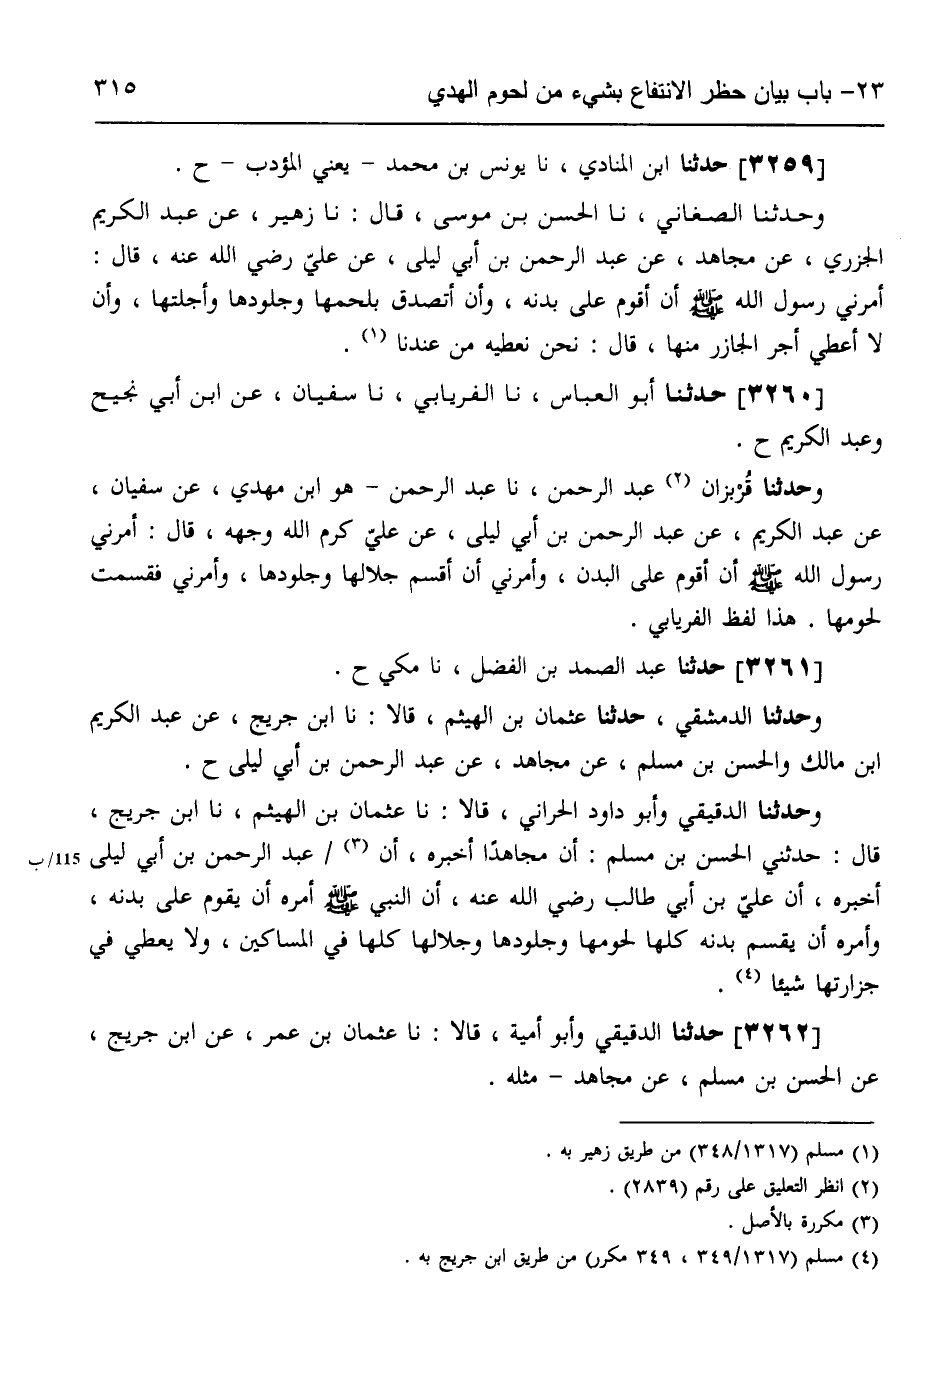 ٢٣- باب بيان حظر الانتفاع بشيء من لحوم الهدي ٣١٥
[٣٢٥٩] حدثنا ابن المنادي ، نا يونس بن محمد - يعني المؤدب - ح .
وحدثنا الصغاني ، نا الحسن بن موسى ، قال : نا زهير ، عن عبد الكريم
الجزري ، عن مجاهد ، عن عبد الرحمن بن أبي ليلى ، عن عليّ رضي الله عنه ، قال :
أمرني رسول الله ﷺ أن أقوم على بدنه ، وأن أتصدق بلحمها وجلودها وأجلتها ، وأن
لا أعطي أجر الجازر منها ، قال : نحن نعطيه من عندنا (١) .
[٣٢٦٠] حدثنا أبو العباس ، نا الفريابي ، نا سفيان ، عن ابن أبي نجيح
وعبد الكريم ح .
وحدثنا قُرْبزان (٢) عبد الرحمن ، نا عبد الرحمن - هو ابن مهدي ، عن سفيان ،
عن عبد الكريم ، عن عبد الرحمن بن أبي ليلى ، عن عليّ كرم الله وجهه ، قال : أمرني
رسول الله ﷺ أن أقوم على البدن ، وأمرني أن أقسم جلالها وجلودها ، وأمرني فقسمت
لحومها . هذا لفظ الفريابي .
[٣٢٦١] حدثنا عبد الصمد بن الفضل ، نا مكي ح .
وحدثنا الدمشقي ، حدثنا عثمان بن الهيثم ، قالا : نا ابن جريج ، عن عبد الكريم
ابن مالك والحسن بن مسلم ، عن مجاهد ، عن عبد الرحمن بن أبي ليلى ح .
وحدثنا الدقيقي وأبو داود الحراني ، قالا : نا عثمان بن الهيثم ، نا ابن جريج ،
قال : حدثني الحسن بن مسلم : أن مجاهدًا أخبره ، أن (٣) / عبد الرحمن بن أبي ليلى 115/ب
أخبره ، أن عليّ بن أبي طالب رضي الله عنه ، أن النبي ﷺ أمره أن يقوم على بدنه ،
وأمره أن يقسم بدنه كلها لحومها وجلودها وجلالها كلها في المساكين ، ولا يعطي في
جزارتها شيئا (٤) .
[٣٢٦٢] حدثنا الدقيقي وأبو أمية ، قالا : نا عثمان بن عمر ، عن ابن جريج ،
عن الحسن بن مسلم ، عن مجاهد - مثله .
(١) مسلم (٣٤٨/١٣١٧) من طريق زهير به .
(٢) انظر التعليق على رقم (٢٨٣٩) .
(٣) مكررة بالأصل .
(٤) مسلم (٣٤٩/١٣١٧ ، ٣٤٩ مكرر) من طريق ابن جريج به .